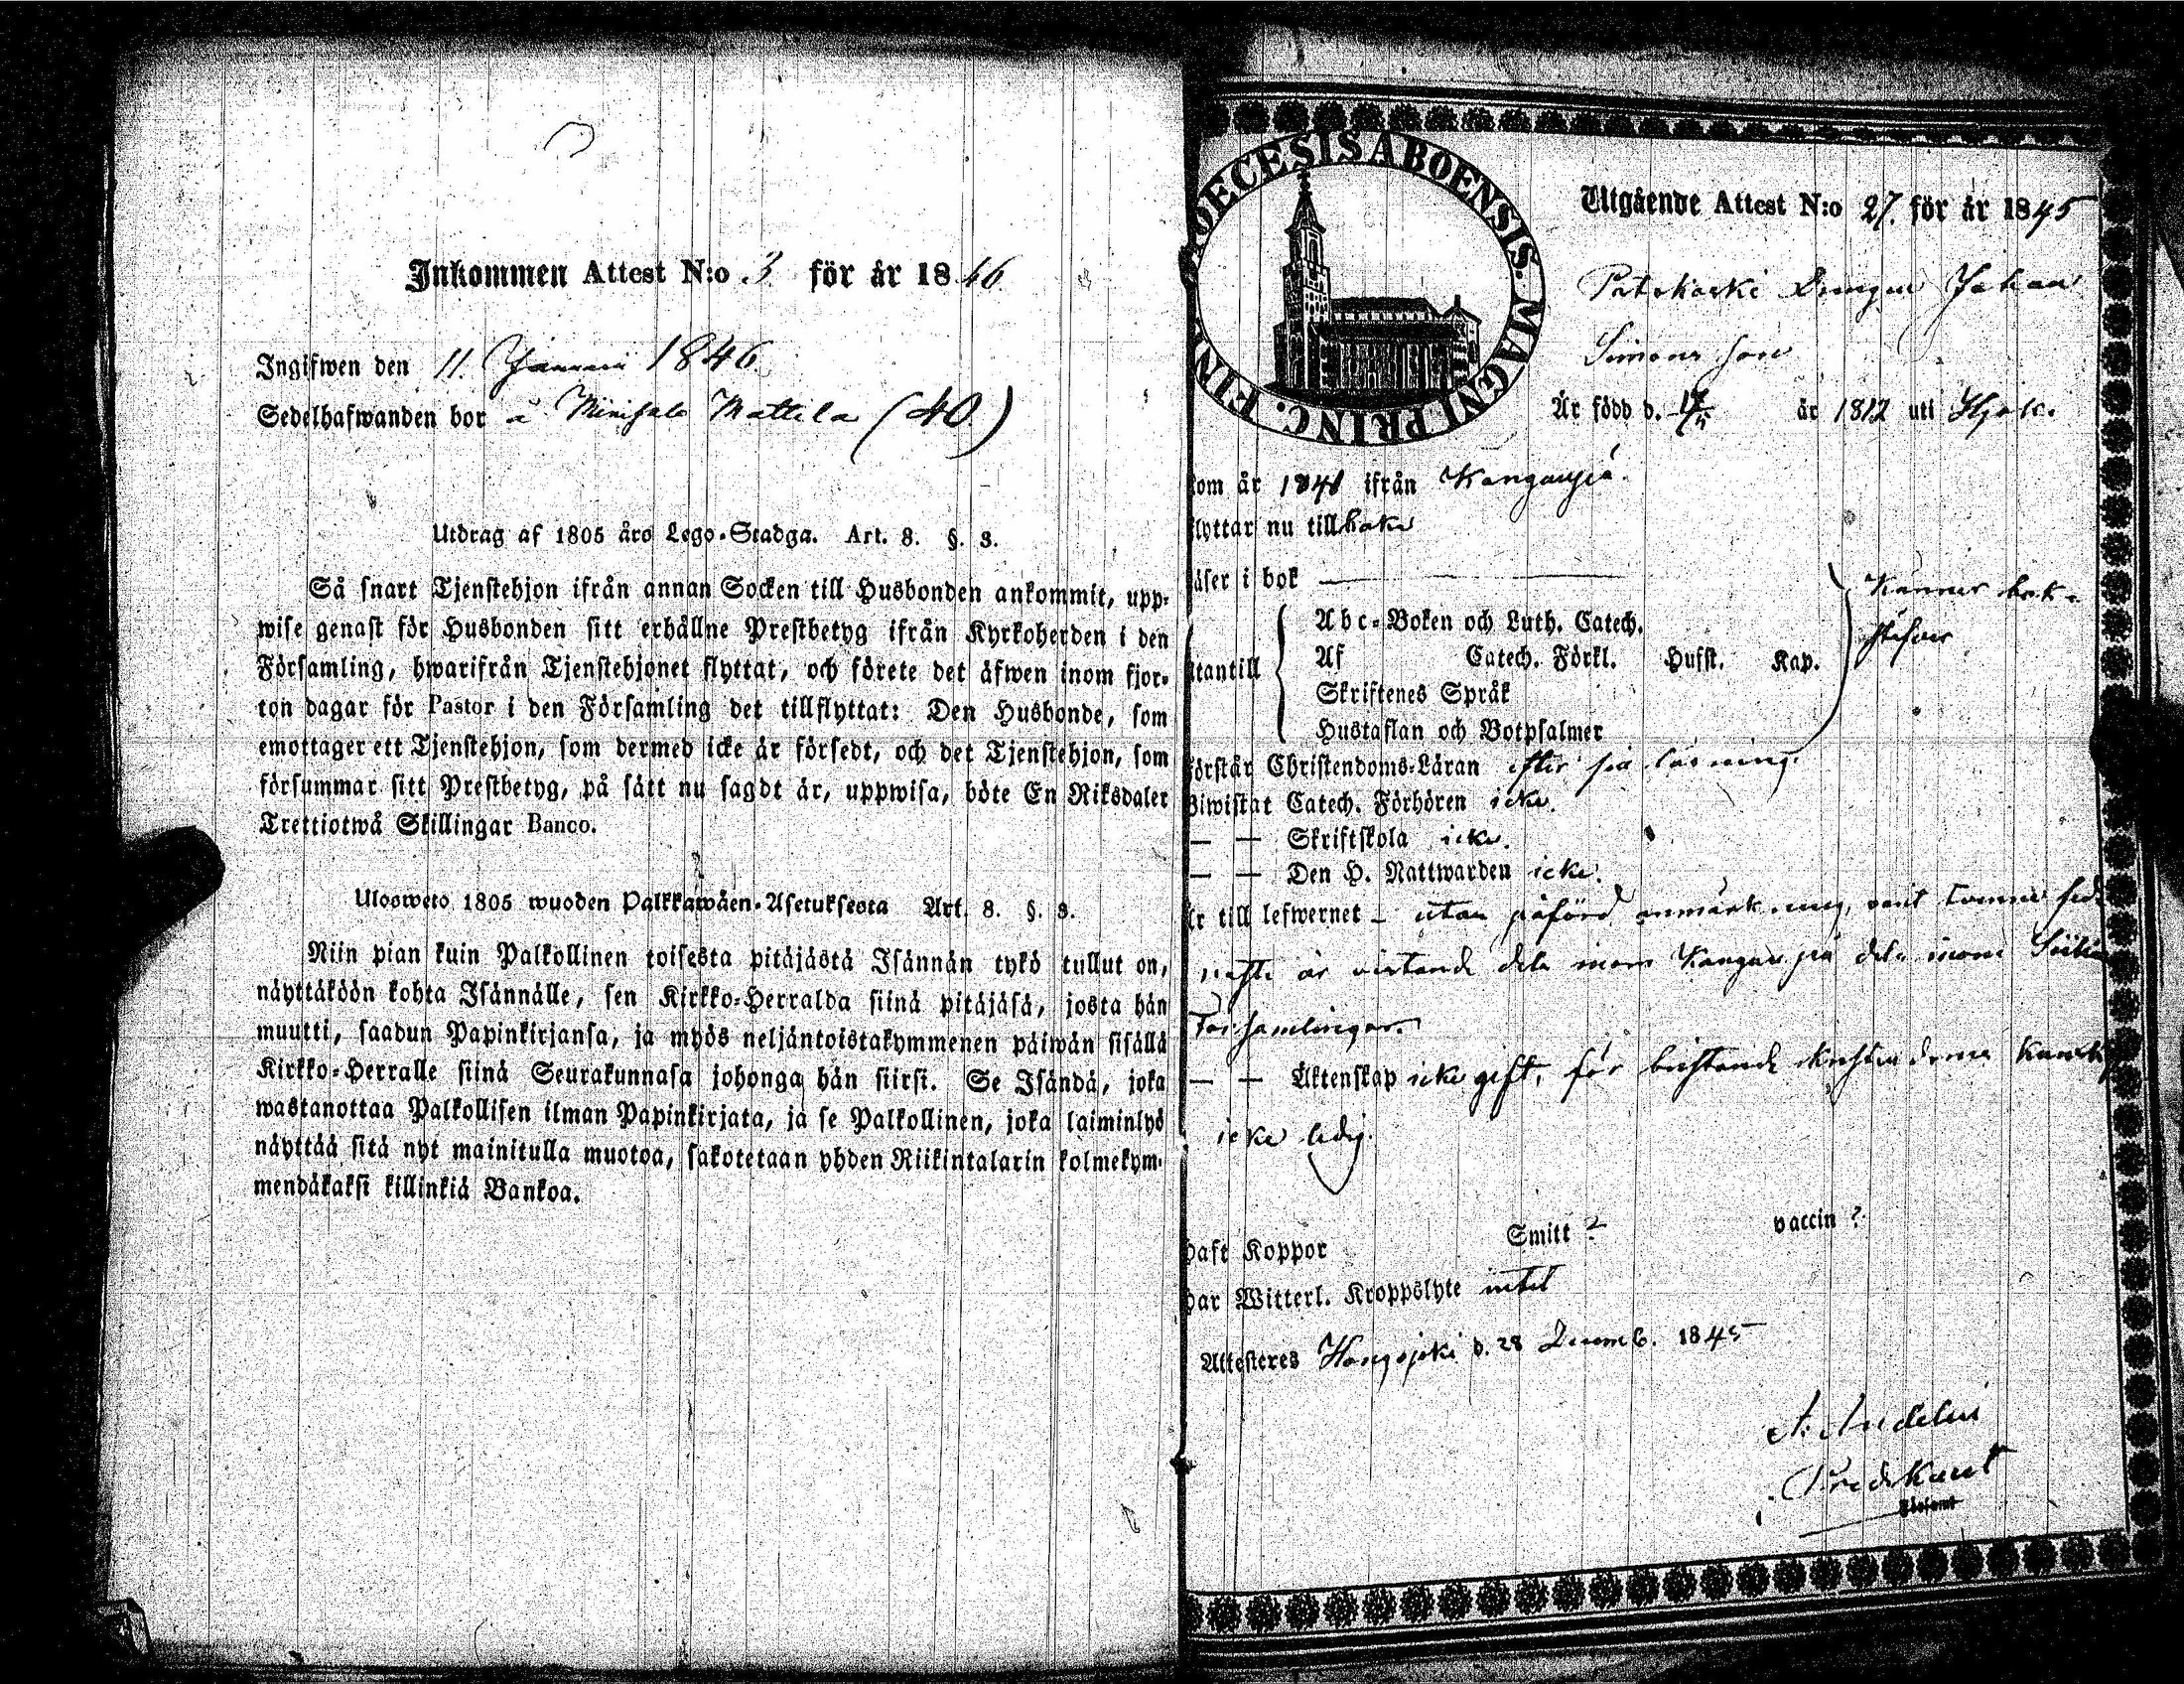 Inkommen Attest N:o 3 för år 1846
Ingifwen den 11 Januari 1846
Sedelhafwanden bor å Minisalo Mattila (40)
Utdrag af 1805 åro Lego-Stadga. Art. 8. §. 3.
Så snart Tjenstehjon ifrån annan Socken till Husbonden ankommit, upp-
wise genast för Husbonden sitt erhållne Prestbetyg ifrån Kyrkoherden i den
Församling, hwarifrån Tjenstehjonet flyttat, och förete det äfwen inom fjor-
ton dagar för Pastor i den Församling det tillflyttat: Den Husbonde, som
emottager ett Tjenstehjon, som dermed icke är försedt, och det Tjenstehjon, som
försummar sitt Prestbetyg, på sätt nu sagdt är, uppwisa, böte En Riksdaler
Trettiotwå Skillingar Banco.
Ulosweto 1805 wuoden Palkkawäen-Asetuksesta Art. 8. §. 3.
Niin pian kuin Palkollinen toisesta pitäjästä Isännän tykö tullut on,
näyttäköön kohta Isännälle, sen Kirkko-Herralda siinä pitäjäsä, josta hän
muutti, saadun Papinkirjansa, ja myös neljäntoistakymmenen päiwän sisällä
Kirkko-Herralle siinä Seurakunnasa johonga hän siirsi. Se Isändä, joka
wastanottaa Palkollisen ilman Papinkirjata, ja se Palkollinen, joka laiminlyö
näyttää sitä nyt mainitulla muotoa, sakotetaan yhden Riikintalarin kolmekym-
mendäkaksi killinkiä Bankoa.
DIOECESIS ABOENSIS. MAGNI PRINC. FINL
Utgående Attest N:o 27. för år 1845
Patokoski Drengen Johan
Simons son
Är född d. 17/5 år 1812 uti Hjok.
kom år 1841 ifrån Kangasjä
flyttar nu tillbaka
läser i bok —
utantill
Abc-Boken och Luth. Catech.
Af Catech. Förkl. Husst. Kap.
Skriftenes Språk
Hustaflan och Botpsalmer
Känner bok-
stäfver
förstår Christendoms-Läran efter sin läsning.
Biwistat Catech. Förhören icke.
— — Skriftskola icke.
— — Den H. Nattwarden icke.
Är till lefwernet — utan påförd anmärkning, varit
år vistande dels inom Kangasjä dels inom
Församlingar.
— — Äktenskap icke gift, för bristande christendoms kunskap
icke ledig.
haft Koppor Smitt ? vaccin ?
har Witterl. Kroppslyte intet
Attesteres Hongojoki d. 28 Decemb. 1845
A. Andelin
Predikant